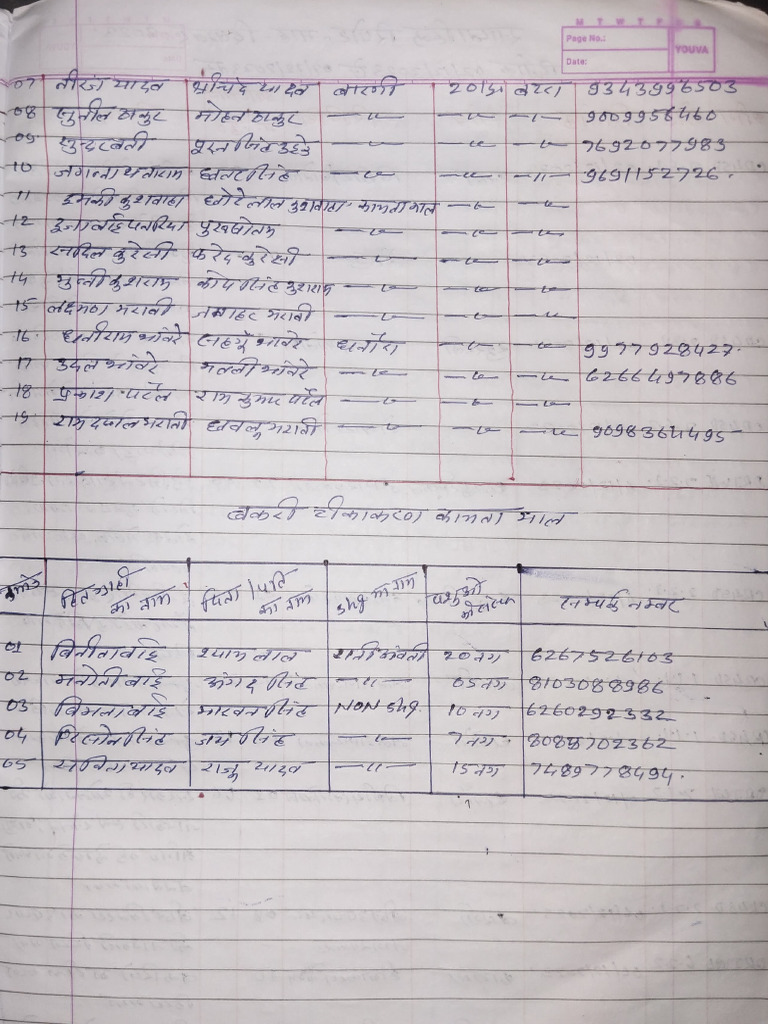 M T W T F S S
Page No.:
Date:
YOUVA
07 नीरज यादव श्रीचंद यादव बारंगी 20/51 बटरा 9343996503
08 सुनील ठाकुर मोहन ठाकुर —〃— —〃— —〃— 9009956460
09 सुन्दरवती पूरन सिंह उइके —〃— —〃— —〃— 7692077983
10 छतर सिंह —〃— —〃— —〃— 9691152726.
11 इमली कुशवाहा छोटे लाल कुशवाहा कामता माल —〃— —〃—
12 पुरुषोतम —〃— —〃— —〃—
13 कुरेसी फरेद कुरेसी —〃— —〃— —〃—
14 मुन्नी कुशराम सिंह कुशराम —〃— —〃— —〃—
15 लक्ष्मण मरावी जवाहर मरावी —〃— —〃— —〃—
16. धनीराम भांवरे भांवरे धनौरा —〃— —〃— 9977928427.
17 उदल भांवरे भांवरे —〃— —〃— —〃— 6266497886
18 प्रकाश पटेल राम कुमार पटेल —〃— —〃— —〃—
19 राम दयाल मरावी मरावी —〃— —〃— —〃— 9098364495
बकरी टीकाकरण कामता माल
क्रमांक हितग्राही का नाम पिता/पति का नाम shg का नाम पशुओ की संख्या सम्पर्क नम्बर
01 विनीता बाई श्याम लाल रानी अवंती 20 नग 6267526103
02 मनोती बाई अंगद सिंह —〃— 05 नग 8103088986
03 विमला बाई सिंह NON Shg. 10 नग 6260292332
04 सिंह जय सिंह —〃— 7 नग 8088702362
05 सविता यादव राजू यादव —〃— 15 नग 7489778494.